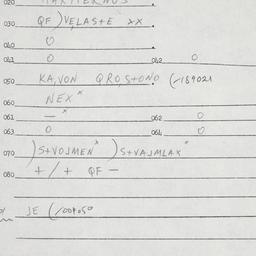 020
030 QF )VELASTE xx.
040 0
041 0 042 0
050 KA,VON QRO,STOND (-189021
060 NEX x
061 — x 062 0
063 0 064 0
070 )S+VOJMEN x )S+VAJMLAX x
080 +/+ QF —
JE (/004050